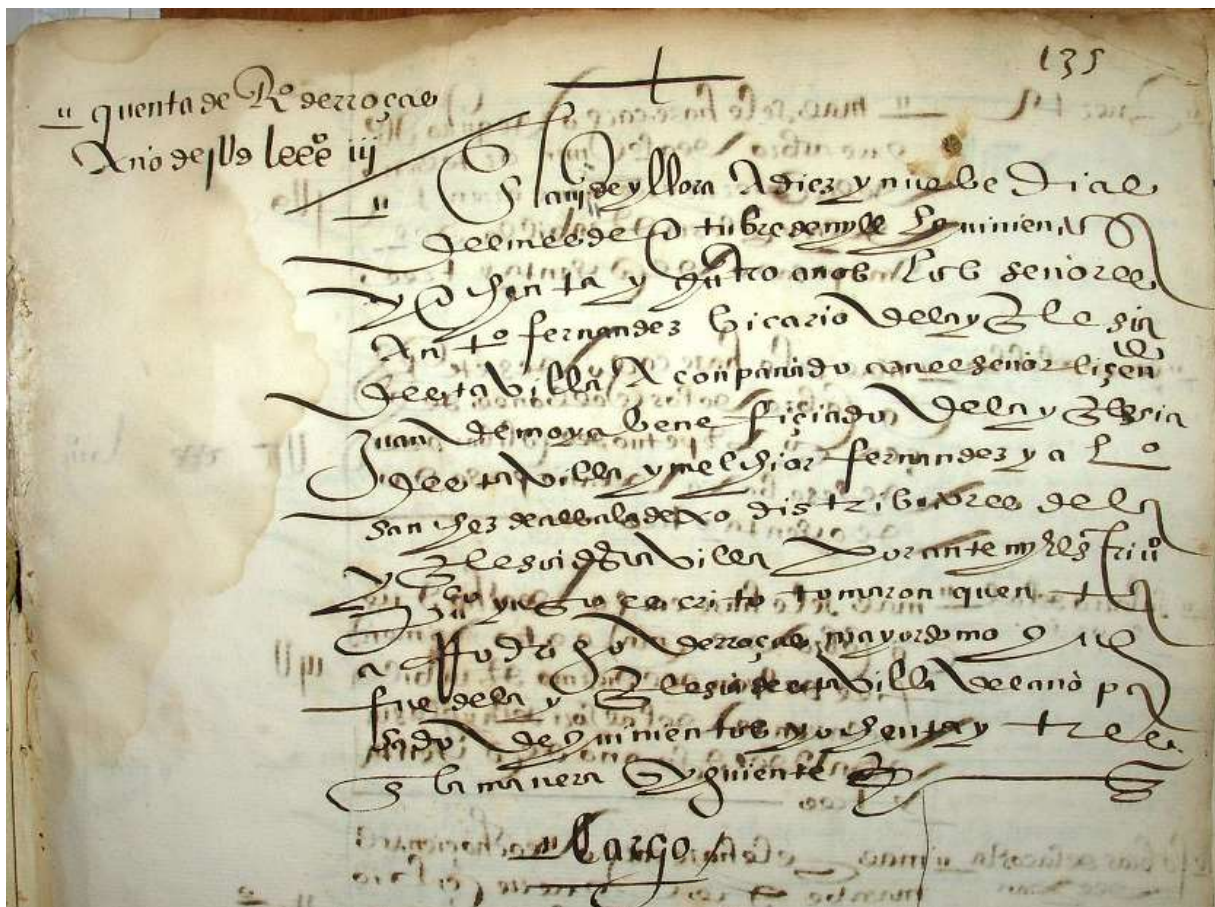 135
quenta de R.º derroças
Año de jUd lxxxº iij
En la villa de yllora A diez y nuebe dias
del mes de otubre de myll quinientos
y ochenta y quatro años los señores
Antº fernandez bicario de la yglesia
desta villa Aconpañado con el señor liçendº
Juan de moya benefiçiado de la yglesia
desta villa y melchior fernandez y aLº
sanchez distribuidores de la
yglesia desta villa por ante my
yuso escrito tomaron quenta
a Rodrigo derroças mayordomo que
fue de la yglesia desta villa del año pa
sado de quinientos y ochenta y tres
en la manera syguiente
Cargo